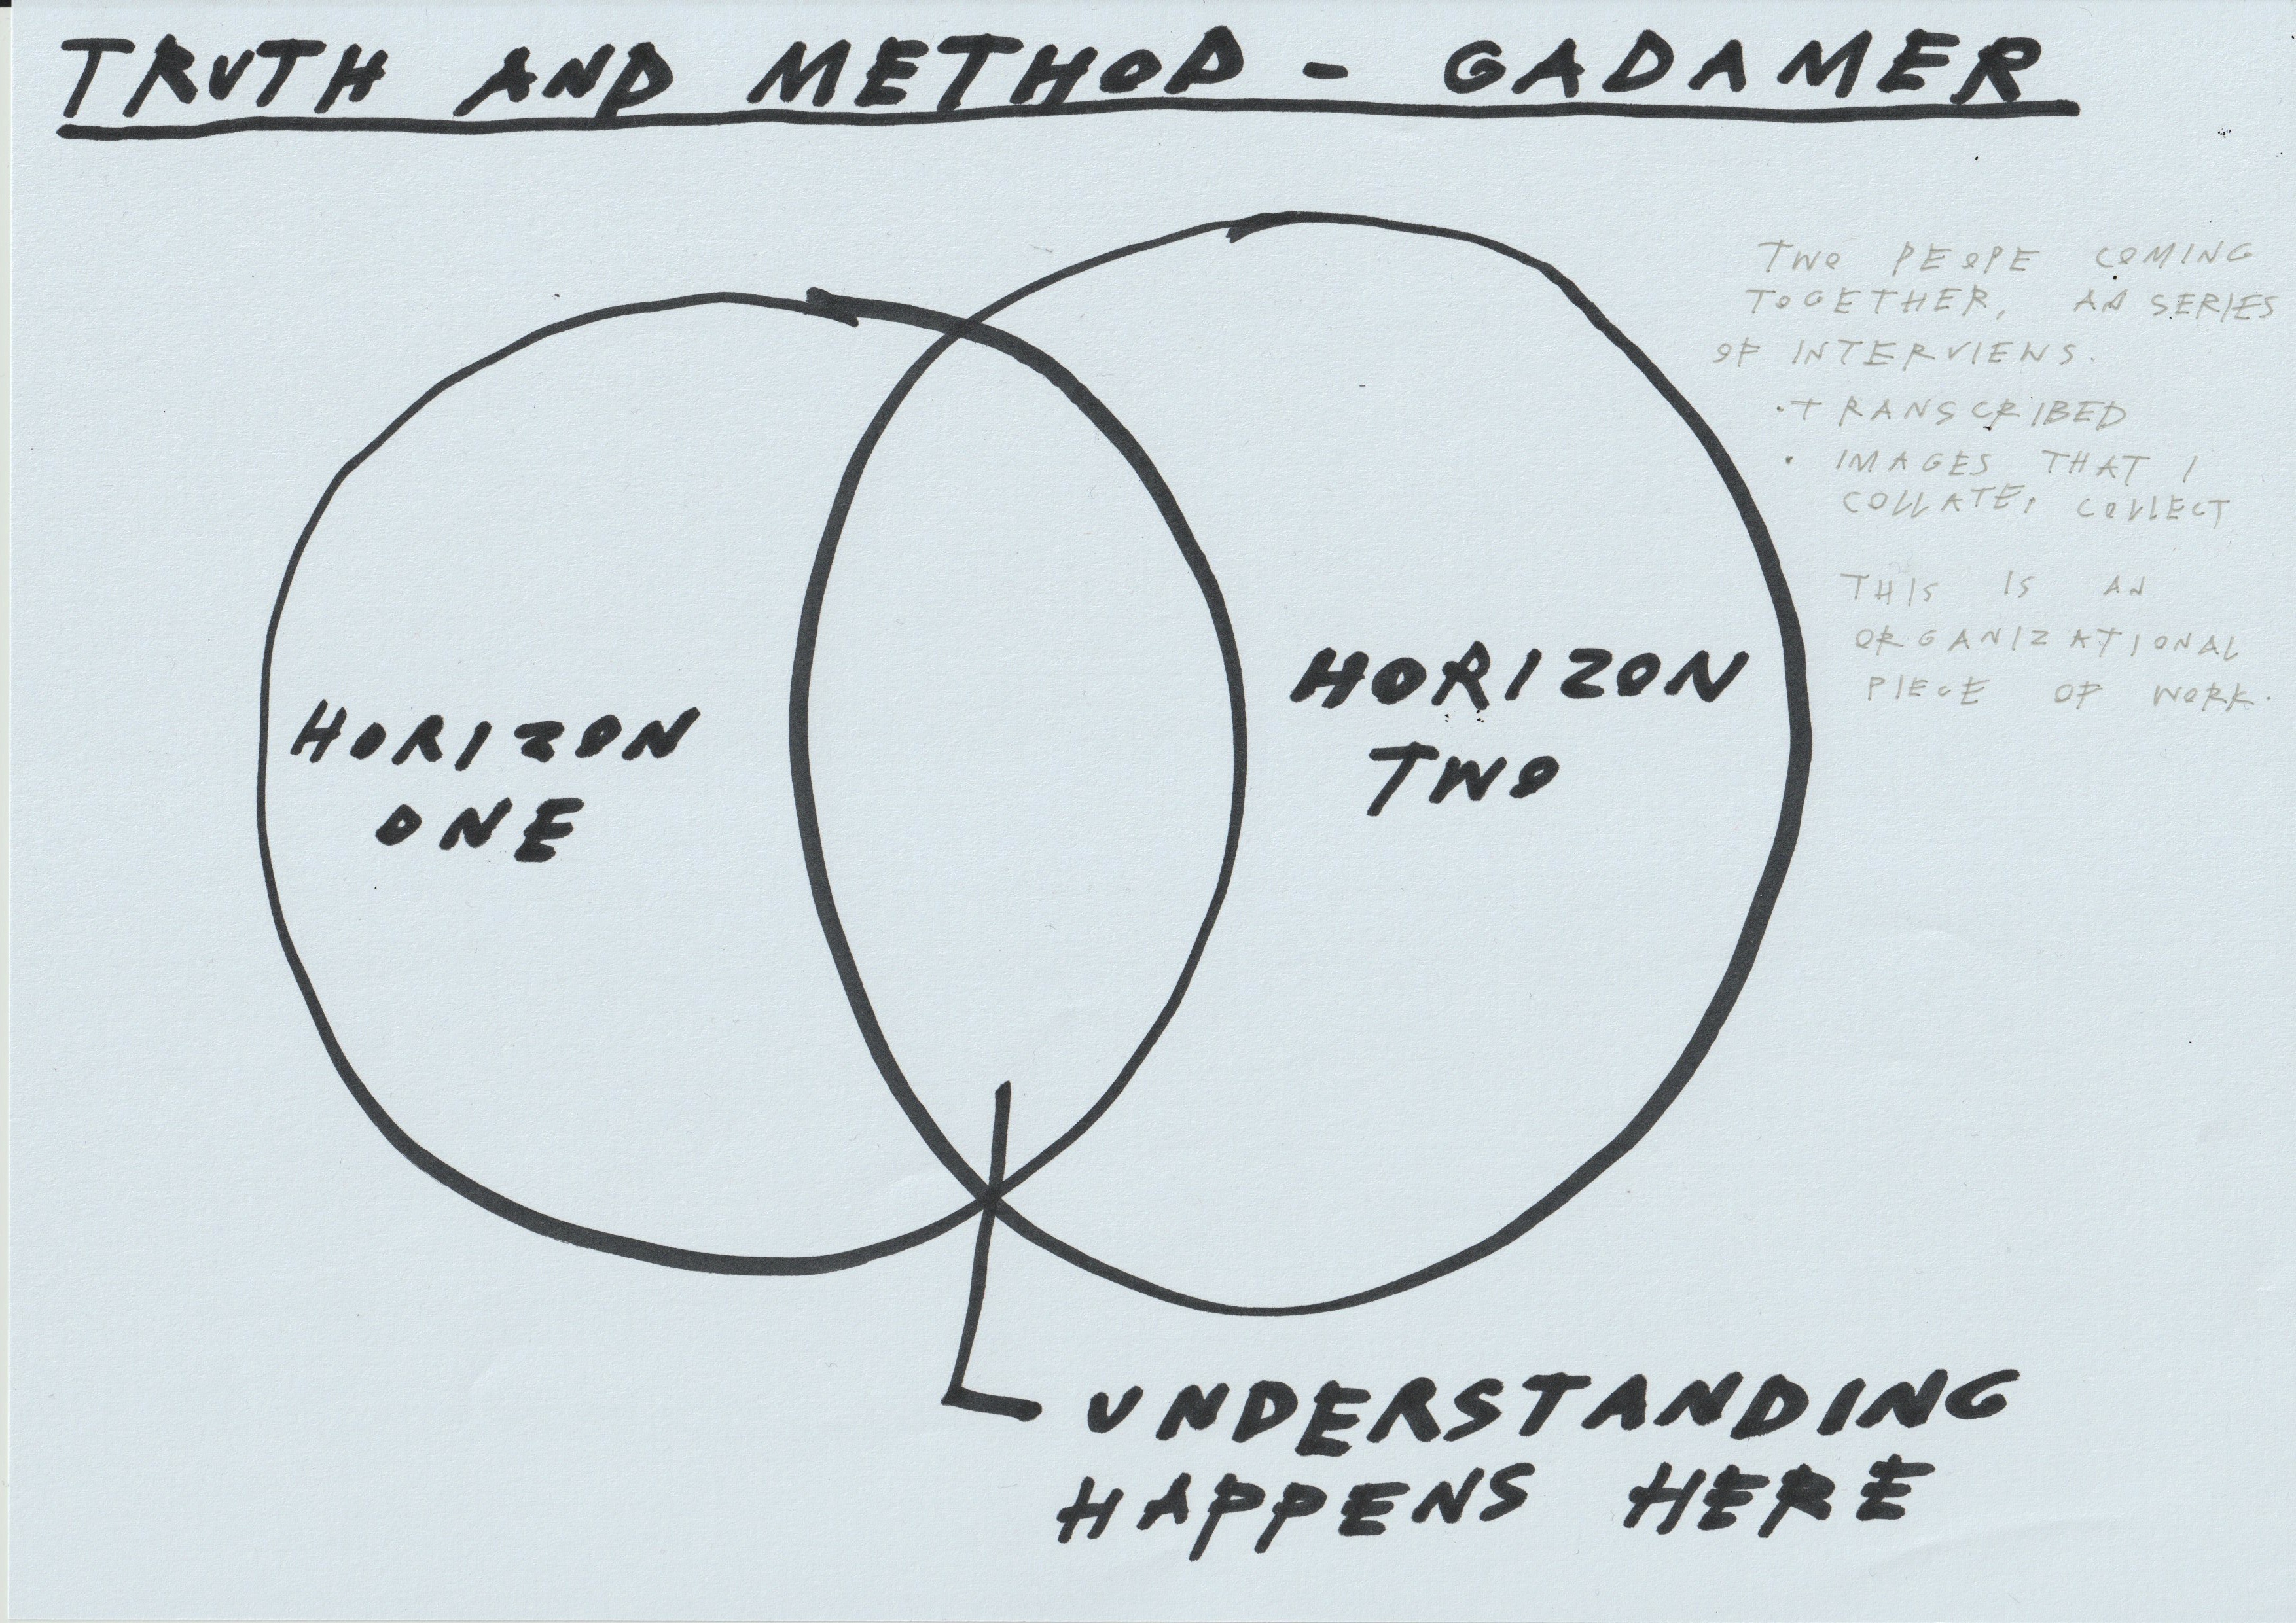 TRUTH AND METHOD - GADAMER
TWO PEOPE COMING
TOGETHER, AN SERIES
OF INTERVIEWS.
·TRANSCRIBED
· IMAGES THAT I
COLLATE, COLLECT
THIS IS AN
ORGANIZATIONAL
PIECE OF WORK.
HORIZON
ONE
HORIZON
TWO
UNDERSTANDING
HAPPENS HERE